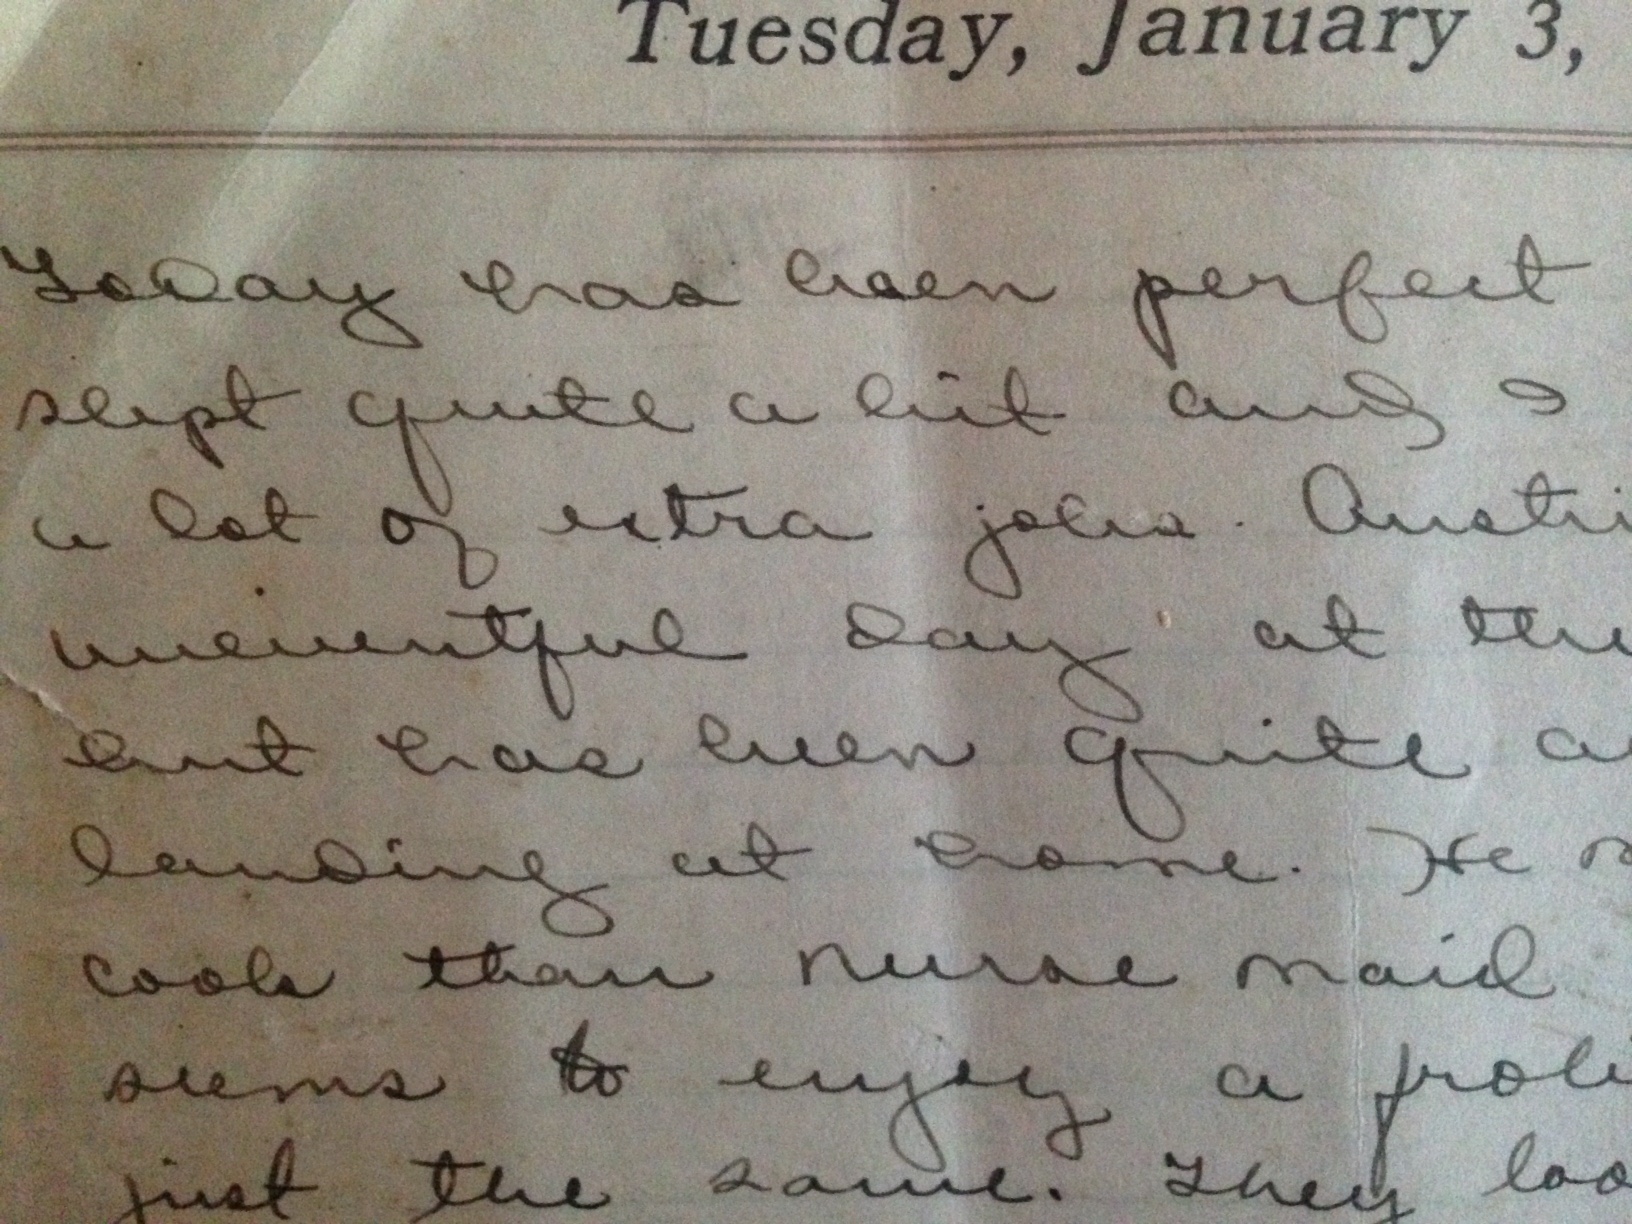 Tuesday, January 3,
Today has been perfect
slept quite a bit and I
a lot of extra jobs. Austi
uneventful day at the
but has been quite a
landing at home. He
cook than nurse maid
seems to enjoy a froli
just the same. They loo